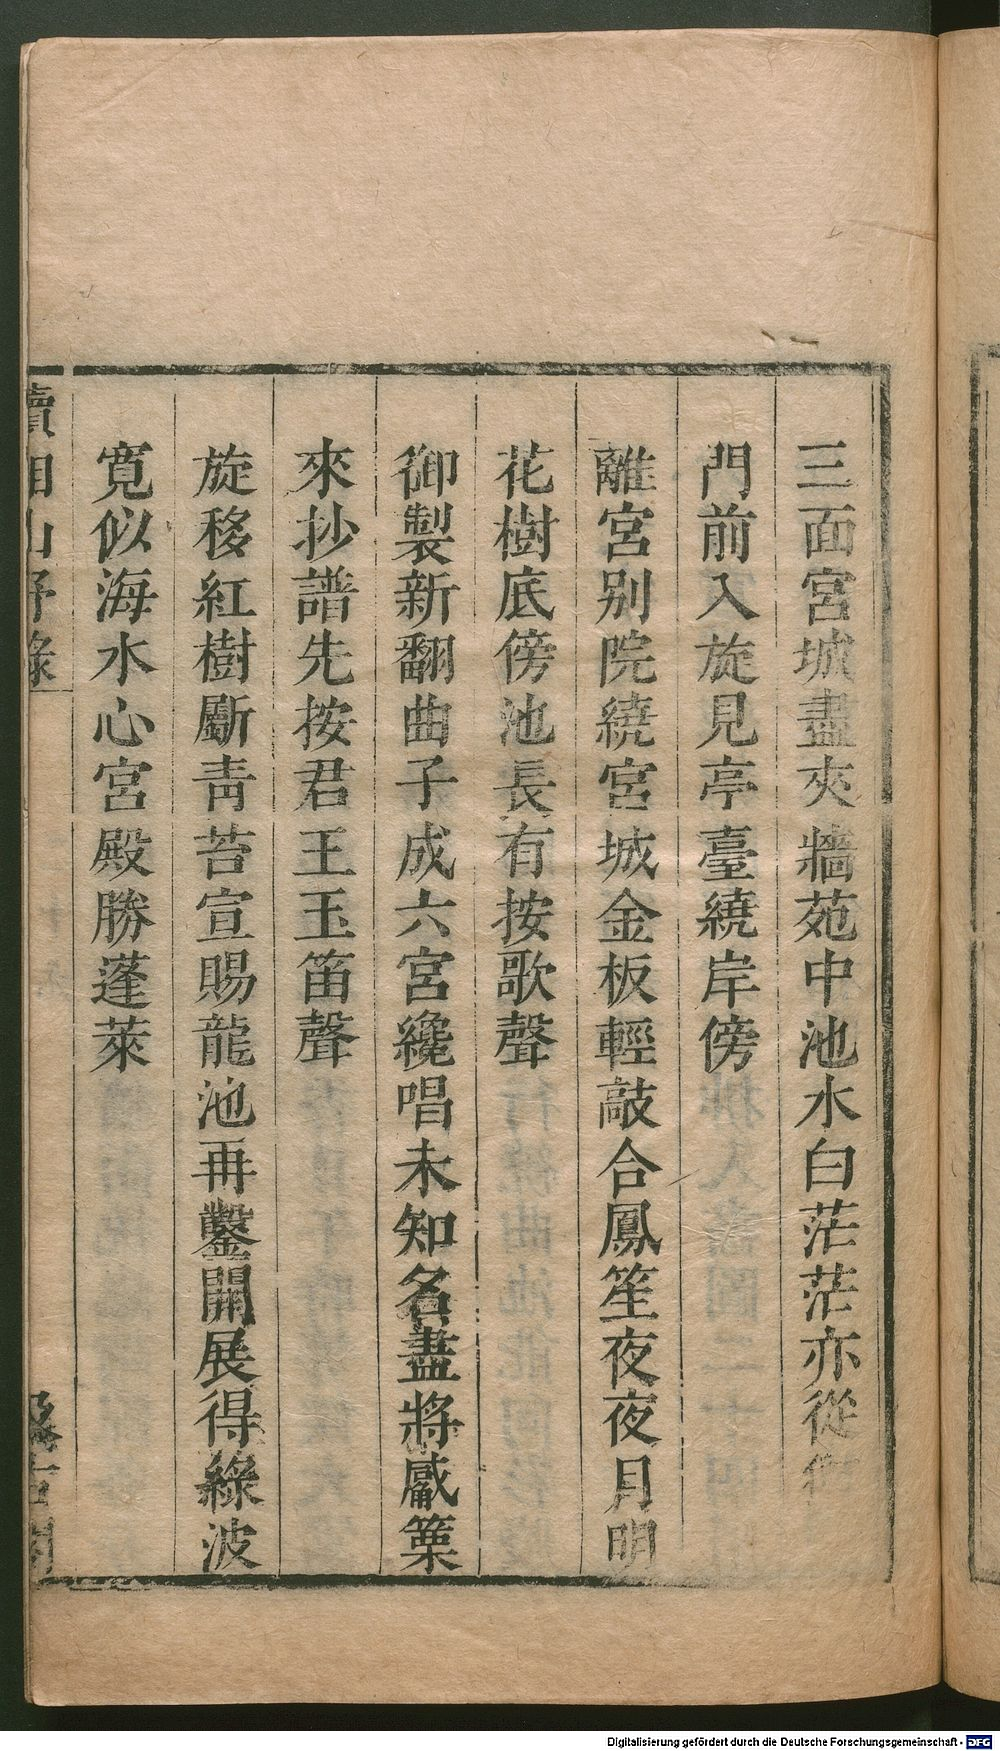 三面宮城盡夾牆苑中池水白茫茫亦從
門前入旋見亭臺繞岸傍
離宮别院繞宮城金板輕敲合鳳笙夜夜月明
花樹底傍池長有按歌聲
御製新翻曲子成六宮纔唱未知名盡將觱篥
來抄譜先按君王玉笛聲
旋移紅樹斸靑苔宣賜龍池再鑿開展得綠波
寬似海水心宮殿勝蓬萊
Digitalisierung gefördert durch die Deutsche Forschungsgemeinschaft - DFG